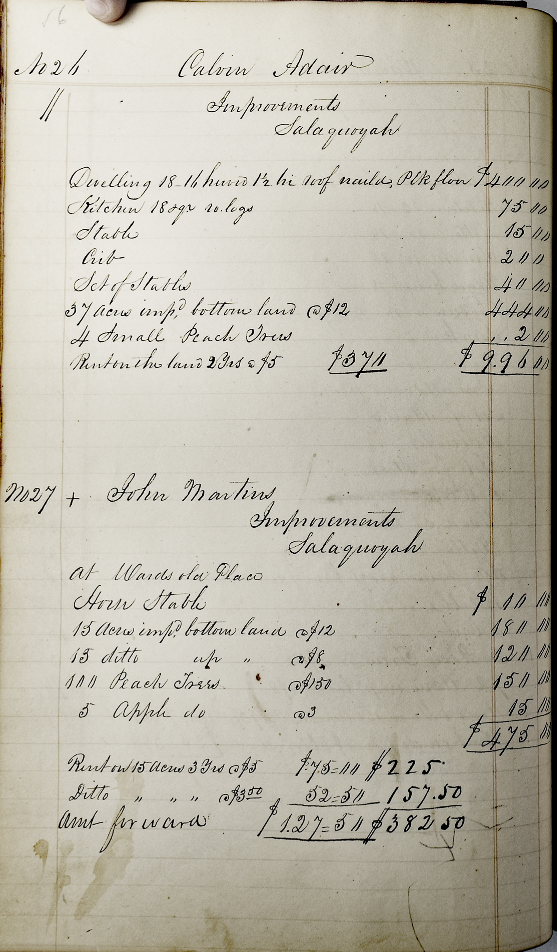 16
No 26 Calvin Adair
Improvements
Salaquoyah
Dwelling 18-16 hewd 1½ hi roof naild, Plk floor $400 00
Kitchen 18 sqr ro. logs 75 00
Stable 15 00
Crib 20 0
Set of Stables 40 00
37 Acres imp.d bottom land @ $12 444 00
4 Small Peach Trees .. 2 00
Rent on the land 2 Yrs @ $5 $370 $996 00
No 27 + John Martins
Improvements
Salaquoyah
At Wards old Place
Horse Stable $ 10 00
15 Acres imp.d bottom land @ $12 180 00
15 ditto up " @ $8 120 00
100 Peach Trees @ $1 50 150 00
5 Apple do @ 3 15 00
$ 475 00
Rent on 15 Acres 3 Yrs @ $5 $.75=00 $225
Ditto " " " @ $3 50 52=50 157.50
Amt forward $127=50 $382 50